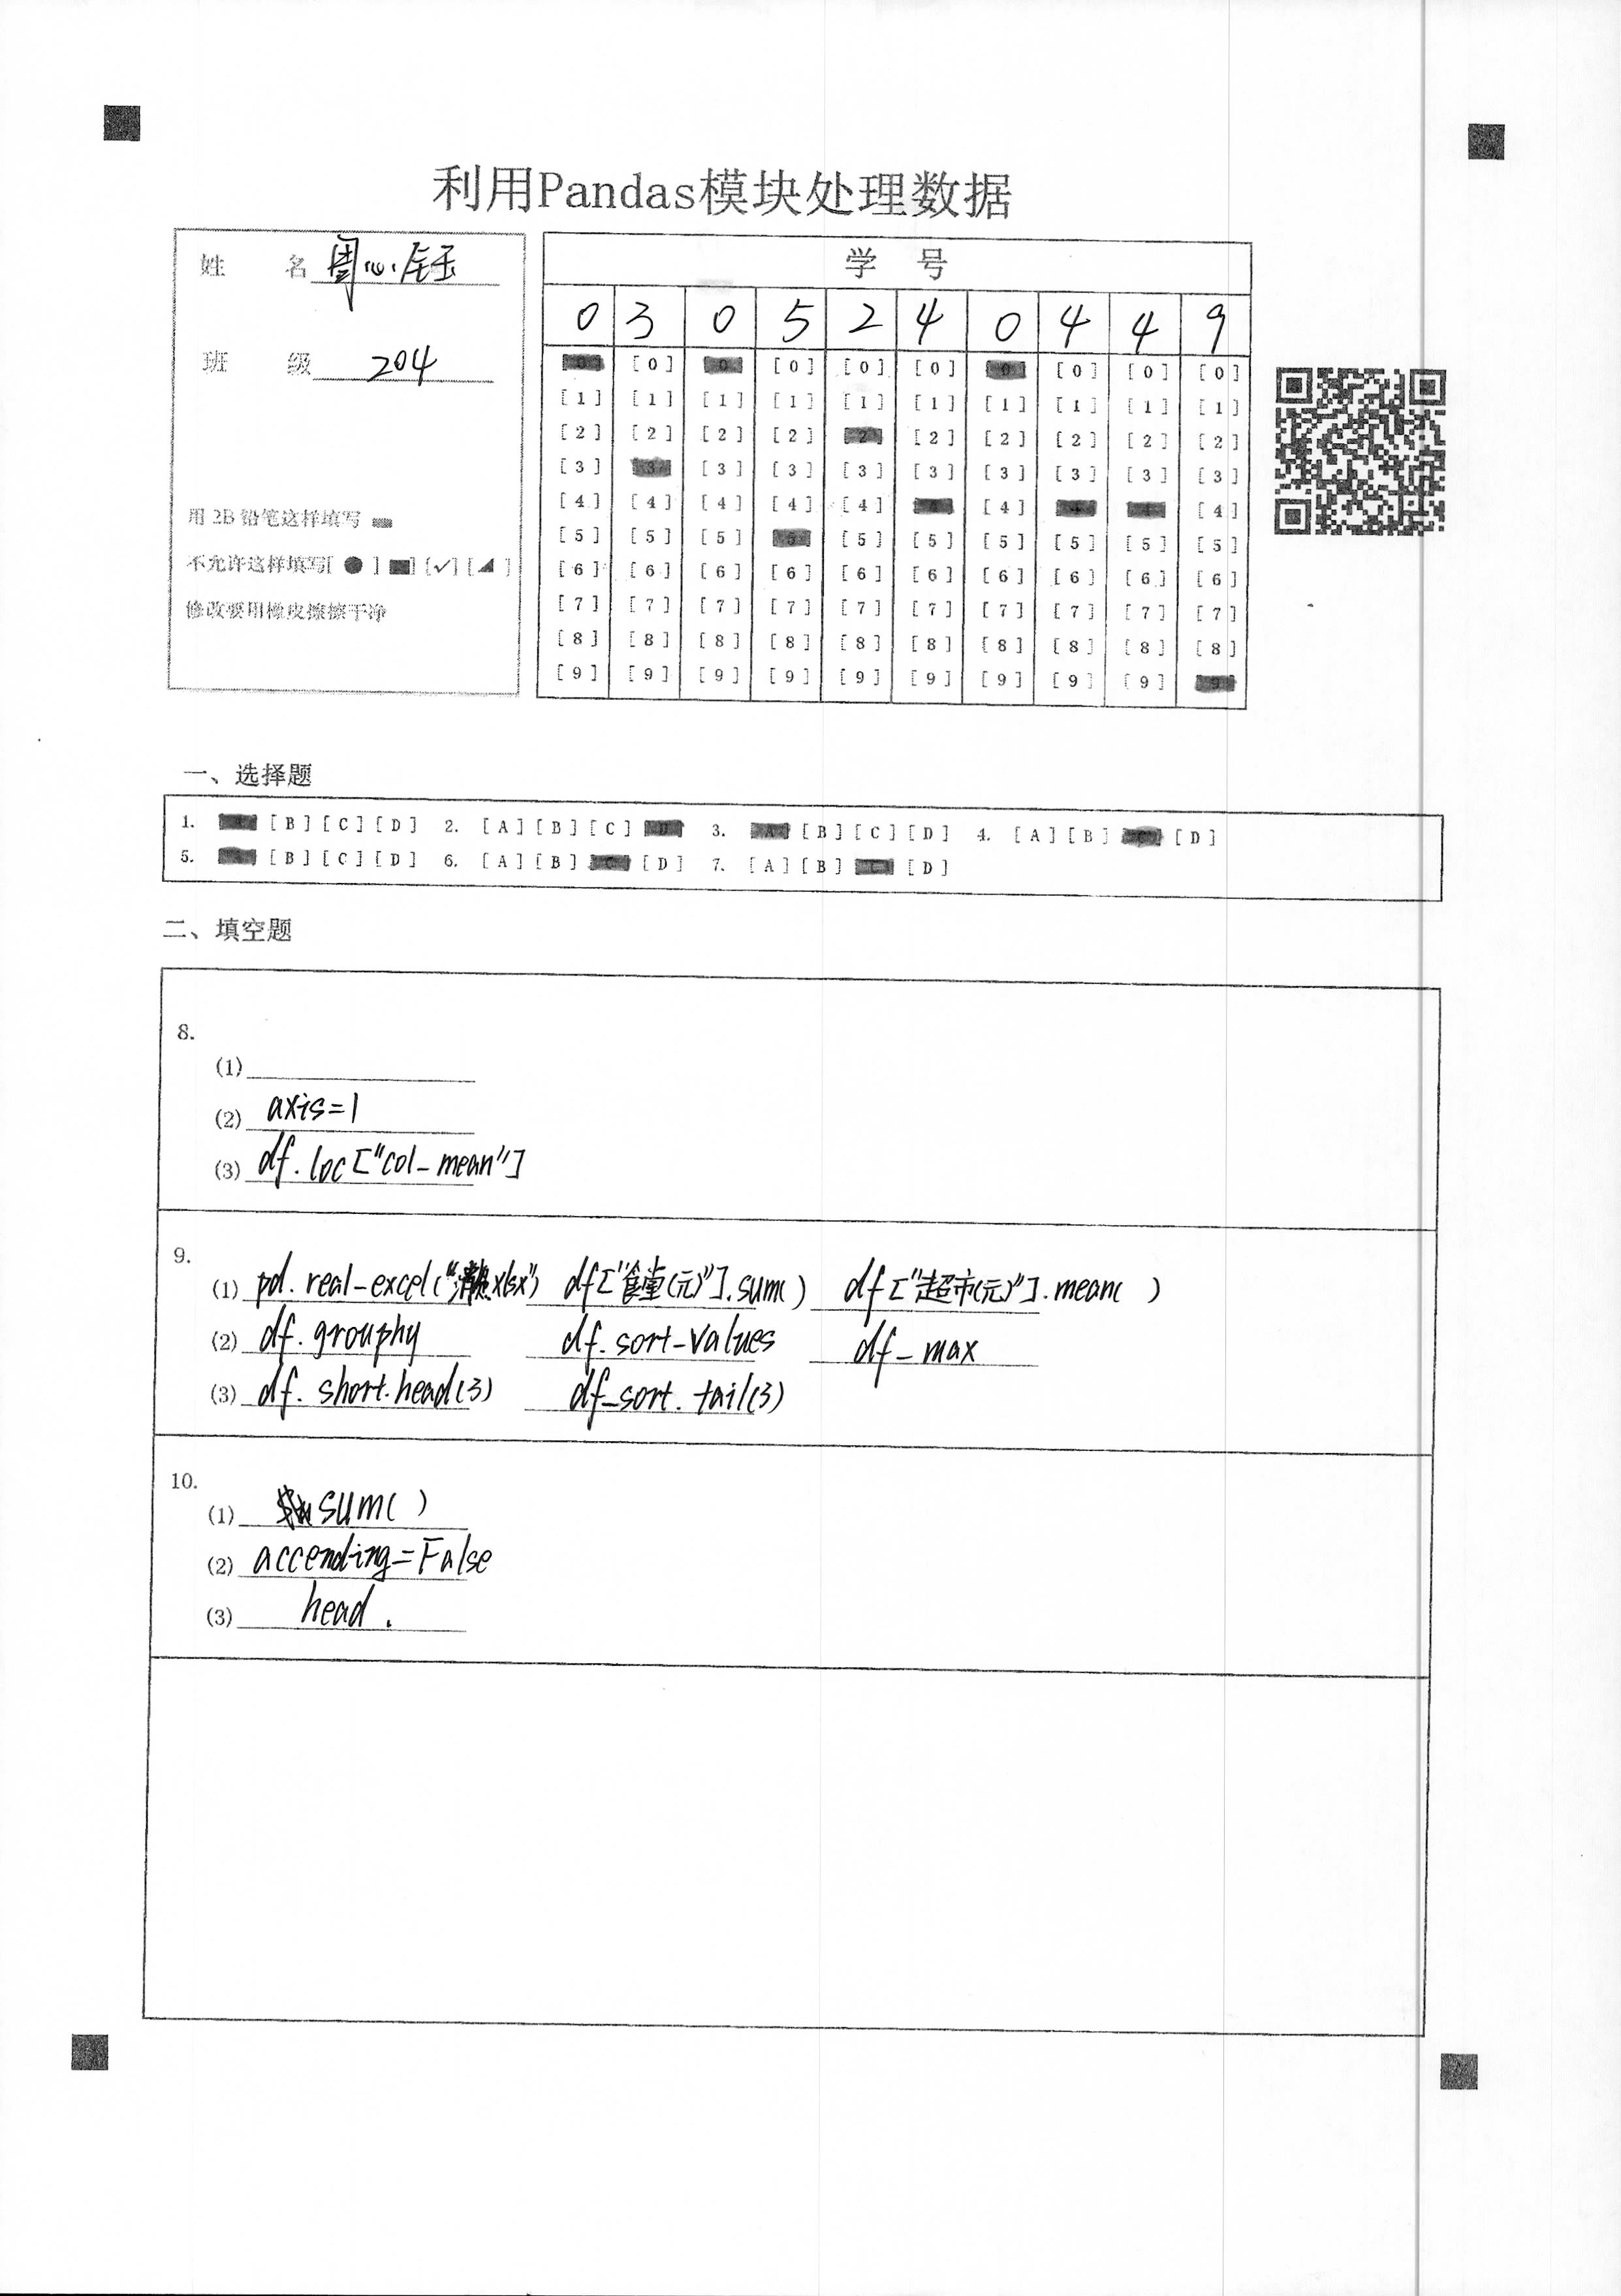 利用Pandas模块处理数据
姓 名 周心钰
班 级 204
用 2B 铅笔这样填写
不允许这样填写[ ● ] [✓] [◢ ]
修改要用橡皮擦擦干净
学 号
0 3 0 5 2 4 0 4 4 9
[0] [0] [0] [0] [0] [0] [0] [0] [0] [0]
[1] [1] [1] [1] [1] [1] [1] [1] [1] [1]
[2] [2] [2] [2] [2] [2] [2] [2] [2] [2]
[3] [3] [3] [3] [3] [3] [3] [3] [3] [3]
[4] [4] [4] [4] [4] [4] [4] [4] [4] [4]
[5] [5] [5] [5] [5] [5] [5] [5] [5] [5]
[6] [6] [6] [6] [6] [6] [6] [6] [6] [6]
[7] [7] [7] [7] [7] [7] [7] [7] [7] [7]
[8] [8] [8] [8] [8] [8] [8] [8] [8] [8]
[9] [9] [9] [9] [9] [9] [9] [9] [9] [9]
一、选择题
1. [A] [B] [C] [D] 2. [A] [B] [C] [D] 3. [A] [B] [C] [D] 4. [A] [B] [C] [D]
5. [A] [B] [C] [D] 6. [A] [B] [C] [D] 7. [A] [B] [C] [D]
二、填空题
8.
(1)
(2) axis=1
(3) df.loc["col-mean"]
9.
(1) pd.real-excel(".xlsx") df["食堂(元)"].sum() df["超市(元)"].mean( )
(2) df.grouphy df.sort-values df-max
(3) df.short.head(3) df-sort.tail(3)
10.
(1) sum( )
(2) accending=False
(3) head.